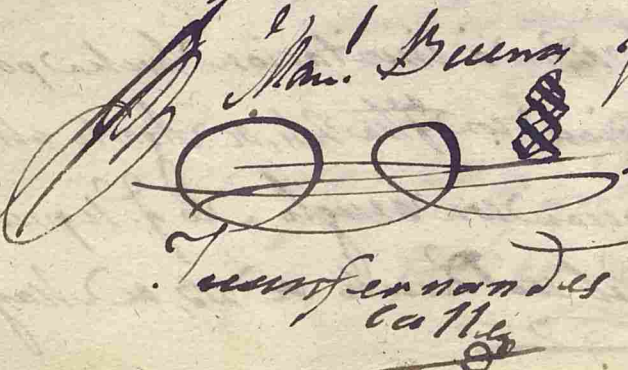 Man.l Bueno
Juan fernandes
Calle